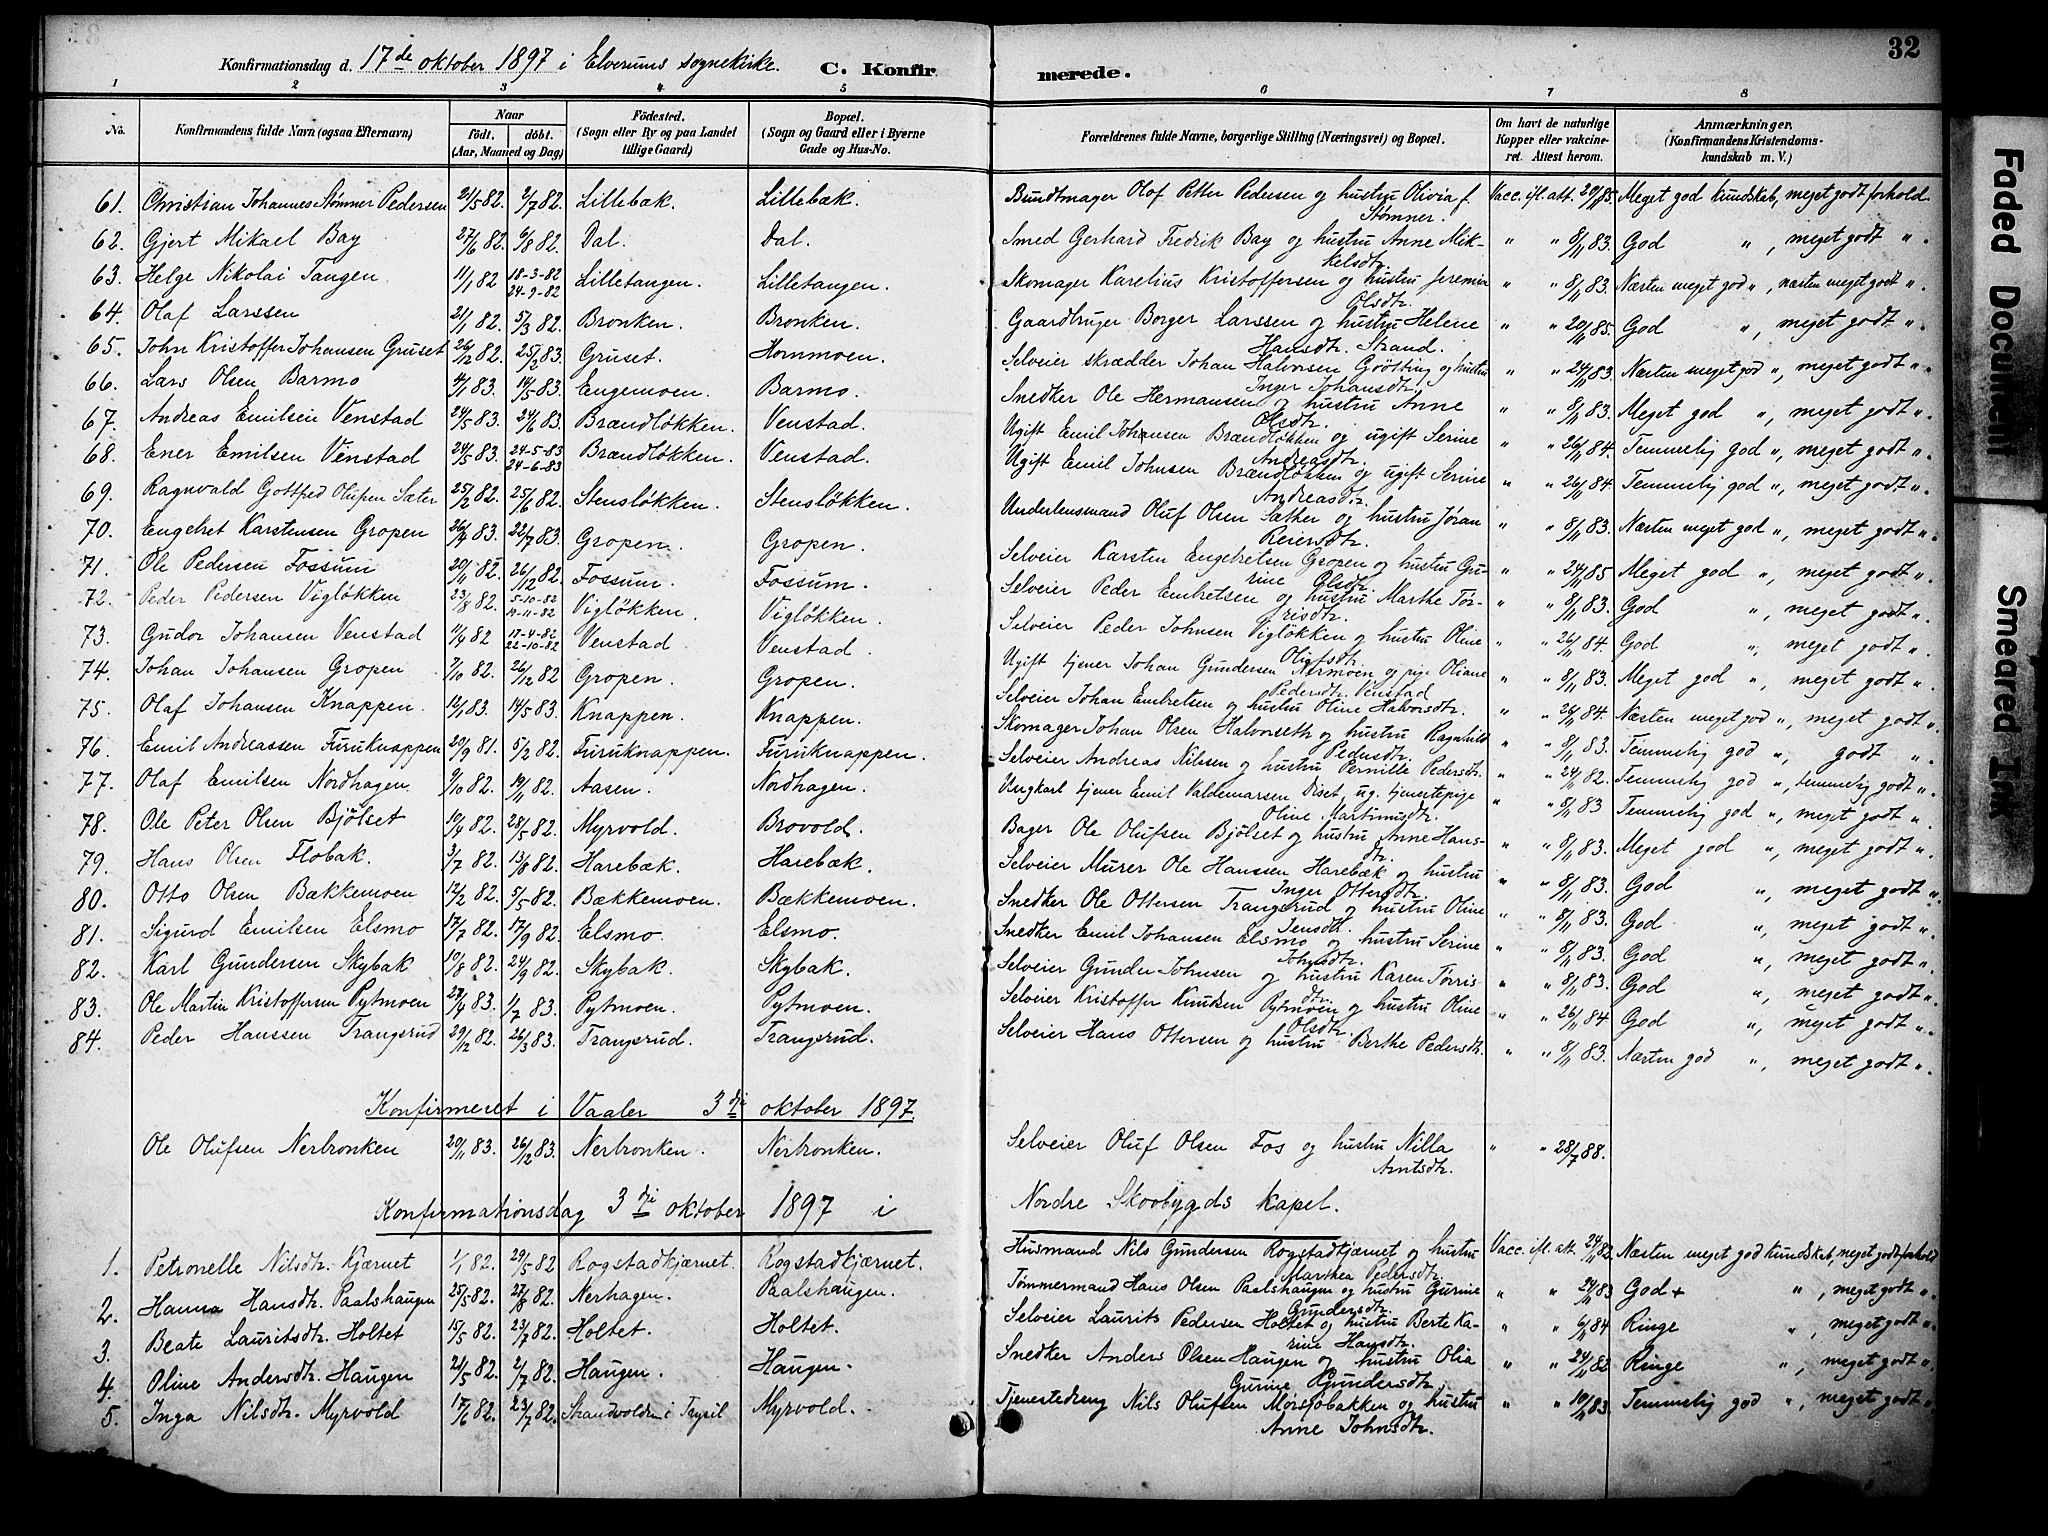 32
Konfirmationsdag d. 17de oktober 1897 i Elverums sognekirke. C. Konfirmerede.
1 2 3 4 5 6 7 8
No. Konfirmandens fulde Navn (ogsaa Efternavn) Naar født, døbt. (Aar, Maaned og Dag) Fødested. (Sogn eller By og paa Landet tillige Gaard) Bopæl. (Sogn og Gaard eller i Byerne Gade og Hus-No. Forældrenes fulde Navne, borgerlige Stilling (Næringsvei) og Bopæl. Om havt de naturlige Kopper eller vakcineret. Attest herom. Anmærkninger. (Konfirmandens Kristendomskundskab m. V.)
61. Christian Johannes Stømner Pedersen 21/5 82. 2/7 82. Lillebæk. Lillebæk. Bundtmager Olaf Petter Pedersen og hustru Olivia f. Stømner. Vacc. ifl. att. 20/11 85. Meget god kundskab, meget godt forhold.
62. Gjert Mikael Bay 27/6 82. 6/8 82. Dal. Dal. Smed Gerhard Fredrik Bay og hustru Anne Mikkelsdtr. " " 8/11 83. God ", meget godt ".
63. Helge Nikolai Tangen 11/1 82 18-3-82 24-9-82 Lilletangen. Lilletangen. Skomager Karelius Kristoffersen og hustru Jeremia Olsdtr. " " 8/11 83. Næsten meget god ", næsten meget godt ".
64. Olaf Larssen 21/1 82. 5/3 82. Bronken. Bronken. Gaardbruger Borger Larssen og hustru Helene Hansdtr. Strand. " " 20/11 85. God ", meget godt ".
65. John Kristoffer Johansen Gruset 26/12 82. 25/2 83. Gruset. Hornmoen. Selveier skrædder Johan Halvorsen og hustru Inger Johansdtr. " " 24/11 83. Næsten meget god ", meget godt ".
66. Lars Olsen Barmo 83. 14/5 83. Engemoen. Barmo. Snedker Ole Hermansen og hustru Anne Olsdtr. " " 8/11 83. Meget god ", meget godt ".
67. Andreas Emilsen Venstad 24/5 83. 24/6 83. Brændløkken. Venstad. Ugift Emil Johansen Brændløkken og ugift Serine Andreasdtr. " " 26/11 84. Temmelig god ", meget godt ".
68. Ener Emilsen Venstad 24/5 83. 24-5-83 24-6-83 Brændløkken. Venstad. Ugift Emil Johnsen Brændløkken og ugift Serine Andreasdtr. " " 26/11 84. Temmelig god ", meget godt ".
69. Ragnvald Gottfred Olufsen Sæter 25/2 82. 25/6 82. Stensløkken. Stensløkken. Underlensmand Oluf Olsen Sæther og hustru Jøran Reiersdtr. " " 8/11 83. Næsten meget god ", meget godt ".
70. Engebret Karstensen Gropen 26/4 83. 22/7 83. Gropen. Gropen. Selveier Karsten Engebretsen Gropen og hustru Gurine Olsdtr. " " 24/11 85 Meget god ", meget godt ".
71. Ole Pedersen Fossum 20/11 82. 26/12 82. Fossum. Fossum. Selveier Peder Embretsen og hustru Marthe Tørrisdtr. " " 8/11 83. God ", meget godt ".
72. Peder Pedersen Vigløkken 23/8 82. 5-10-82 19-11-82 Vigløkken. Vigløkken. Selveier Peder Johnsen Vigløkken og hustru Oline Olafsdtr. " " 26/11 84. God ", meget godt ".
73. Gudor Johansen Venstad 11/4 82 17-4-82 22-10-82 Venstad Venstad. Ugift tjener Johan Gundersen og pige Oliane Pedersdtr. Venstad " " 8/11 83. Meget god ", meget godt ".
74. Johan Johansen Gropen 7/10 82. 26/12 82 Gropen. Gropen. Selveier Johan Embretsen og hustru Oline Halvorsdtr. " " 26/11 84. Næsten meget god ", meget godt ".
75. Olaf Johansen Knappen. 12/1 83. 14/5 83. Knappen. Knappen. Skomager Johan Olsen Halvorseth og hustru Ragnhild Pedersdtr. " " 8/11 83. Temmelig god ", godt ".
76. Emil Andreassen Furuknappen 20/9 81. 5/2 82. Furuknappen. Furuknappen. Selveier Andreas Nilssen og hustru Pernille Pedersdtr. " " 24/11 82. Temmelig god ", temmelig godt ".
77. Olaf Emilsen Nordhagen 9/10 82. 19/11 82. Aasen. Nordhagen. Ungkarl tjener Emil Valdemarsen Diset, ug. tjenestepige Oline Martinusdtr. " " 8/11 83 Temmelig god ", meget godt ".
78. Ole Peter Olsen Bjølset 10/4 82. 28/5 82. Myrvold. Brovold. Bager Ole Olufsen Bjølset og hustru Anne Hansdtr. " " 8/11 83. Meget god ", meget godt ".
79. Hans Olsen Flobak. 3/7 82. 13/8 82. Harebæk. Harebæk. Selveier Murer Ole Hanssen Harebæk og hustru Inger Ottersdtr. " " 8/11 83. God ", meget godt ".
80. Otto Olsen Bækkemoen 12/2 82. 5/5 82. Bækkemoen. Bækkemoen. Snedker Ole Ottersen Trangsrud og hustru Oline Jensdtr. " " 8/11 83. God ", meget godt ".
81. Sigurd Emilsen Elsmo 17/7 82. 17/9 82. Elsmo. Elsmo. Snedker Emil Johansen Elsmo og hustru Serine Johnsdtr. " " 8/11 83. God ", meget godt ".
82. Karl Gundersen Skybak 10/8 82. 24/9 82. Skybak. Skybak. Selveier Gunder Johnsen og hustru Karen Tørrisdtr. " " 8/11 83. God ", meget godt ".
83. Ole Martin Kristoffersen Pytmoen 27/4 83. 1/7 83. Pytmoen. Pytmoen. Selveier Kristoffer Knudsen Pytmoen og hustru Oline Olsdtr. " " 26/11 84 God ", meget godt ".
84. Peder Hanssen Trangsrud 29/12 82. 26/3 83. Trangsrud. Trangsrud. Selveier Hans Ottersen og hustru Berthe Pedersdtr. " " 8/11 83. Næsten god ", meget godt ".
Konfirmeret i Vaaler 3die oktober 1897.
Ole Olufsen Nerbronken 20/11 83. 26/12 83. Nerbronken. Nerbronken. Selveier Oluf Olsen Fos og hustru Nilla Arntsdtr. " " 28/7 88.
Konfirmationsdag 3die oktober 1897 i Nordre Skovbygds kapel.
1. Petronelle Nilsdtr. Kjærnet 1/1 82. 29/5 82 Rogstadkjærnet. Rogstadkjærnet. Husmand Nils Gundersen Rogstadkjærnet og hustru Marthea Pedersdtr. Vacc. ifl. att. 24/11 82. Næsten meget god kundskab, meget godt forhold
2. Hanna Hansdtr. Paalshaugen 25/5 82. 27/8 82. Nerhagen. Paalshaugen. Tømmermand Hans Olsen Paalshaugen og hustru Gurine Gundersdtr. " " 24/11 83 God + ", meget godt ".
3. Beate Lauritsdtr. Holtet 15/5 82. 23/7 82. Holtet. Holtet. Selveier Laurits Pedersen Holtet og hustru Berte Karine Hansdtr. " " 6/11 84 Ringe ", meget godt ".
4. Oline Andersdtr. Haugen 21/5 82. 2/7 82. Haugen. Haugen. Snedker Anders Olsen Haugen og hustru Olia Gurine Gundersdtr. " " 24/11 83 Ringe ", meget godt ".
5. Inga Nilsdtr. Myrvold 17/6 82. 23/7 82. Strandvolden i Trysil Myrvold. Tjenestedreng Nils Olufsen Mørsjøbakken og hustru Anne Johnsdtr. " " 10/11 83. Temmelig god ", meget godt ".
Faded Document
Smeared Ink